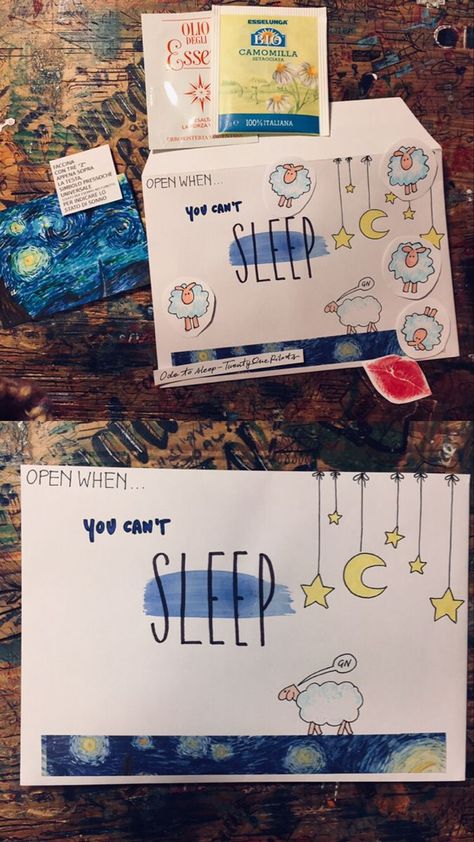 OLIO
DEGLI
ESSELUNGA
BIO
CAMOMILLA
SETACCIATA
100% ITALIANA
IACCINA
CON TRE "Z"
APPENA SOPRA
LA TESTA,
SIMBOLO PRESSOCHÉ
UNIVERSALE
PER INDICARE LO
STATO DI SONNO
OPEN WHEN...
YOU CAN'T
SLEEP
GN
Ode to Sleep - Twenty One Pilots
OPEN WHEN...
YOU CAN'T
SLEEP
GN